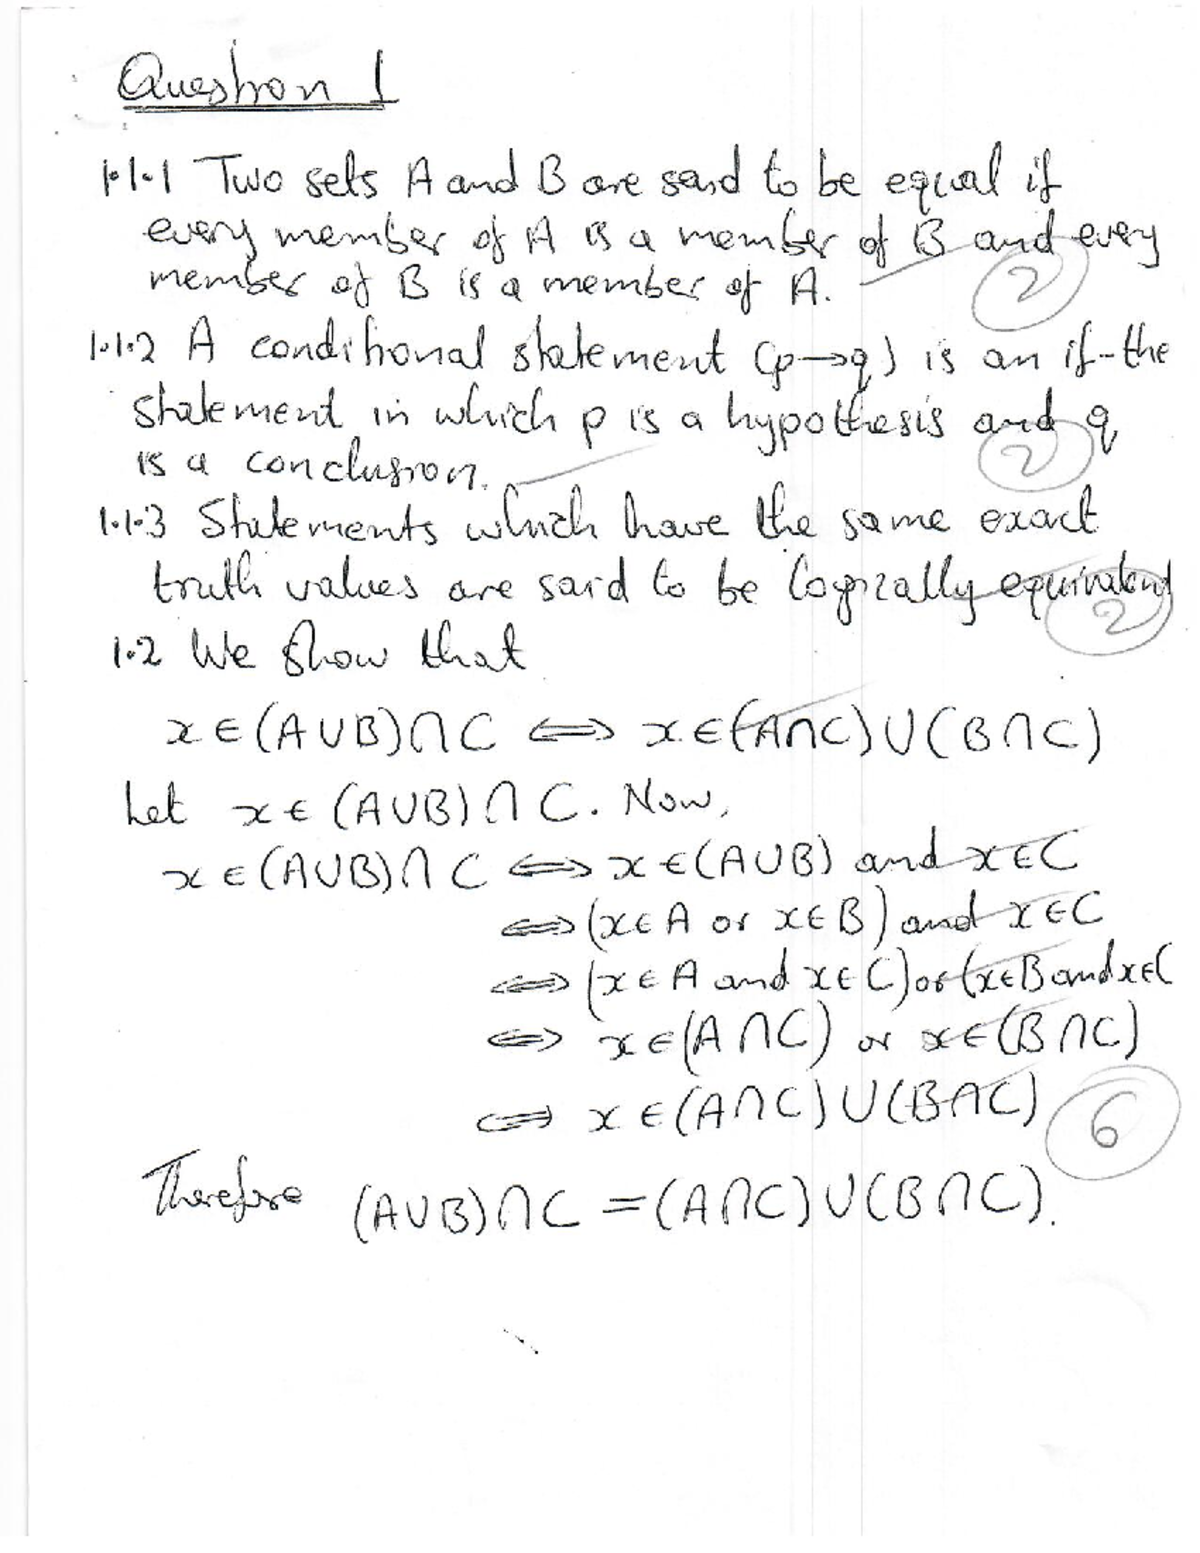 Question 1
1.1.1 Two sets A and B are said to be equal if
every member of A is a member of B and every
member of B is a member of A.
2
1.1.2 A conditional statement (p→q) is an if-the
statement in which p is a hypothesis and q
is a conclusion.
2
1.1.3 Statements which have the same exact
truth values are said to be logically equivalent
2
1.2 We show that
x ∈ (A∪B)∩C ⟺ x ∈ (A∩C)∪(B∩C)
Let x ∈ (A∪B)∩C. Now,
x ∈ (A∪B)∩C ⟺ x ∈ (A∪B) and x∈C
⟺ (x∈A or x∈B) and x∈C
⟺ (x∈A and x∈C) or (x∈B and x∈C
⟺ x∈(A∩C) or x∈(B∩C)
⟺ x∈(A∩C)∪(B∩C)
6
Therefore (A∪B)∩C = (A∩C)∪(B∩C).